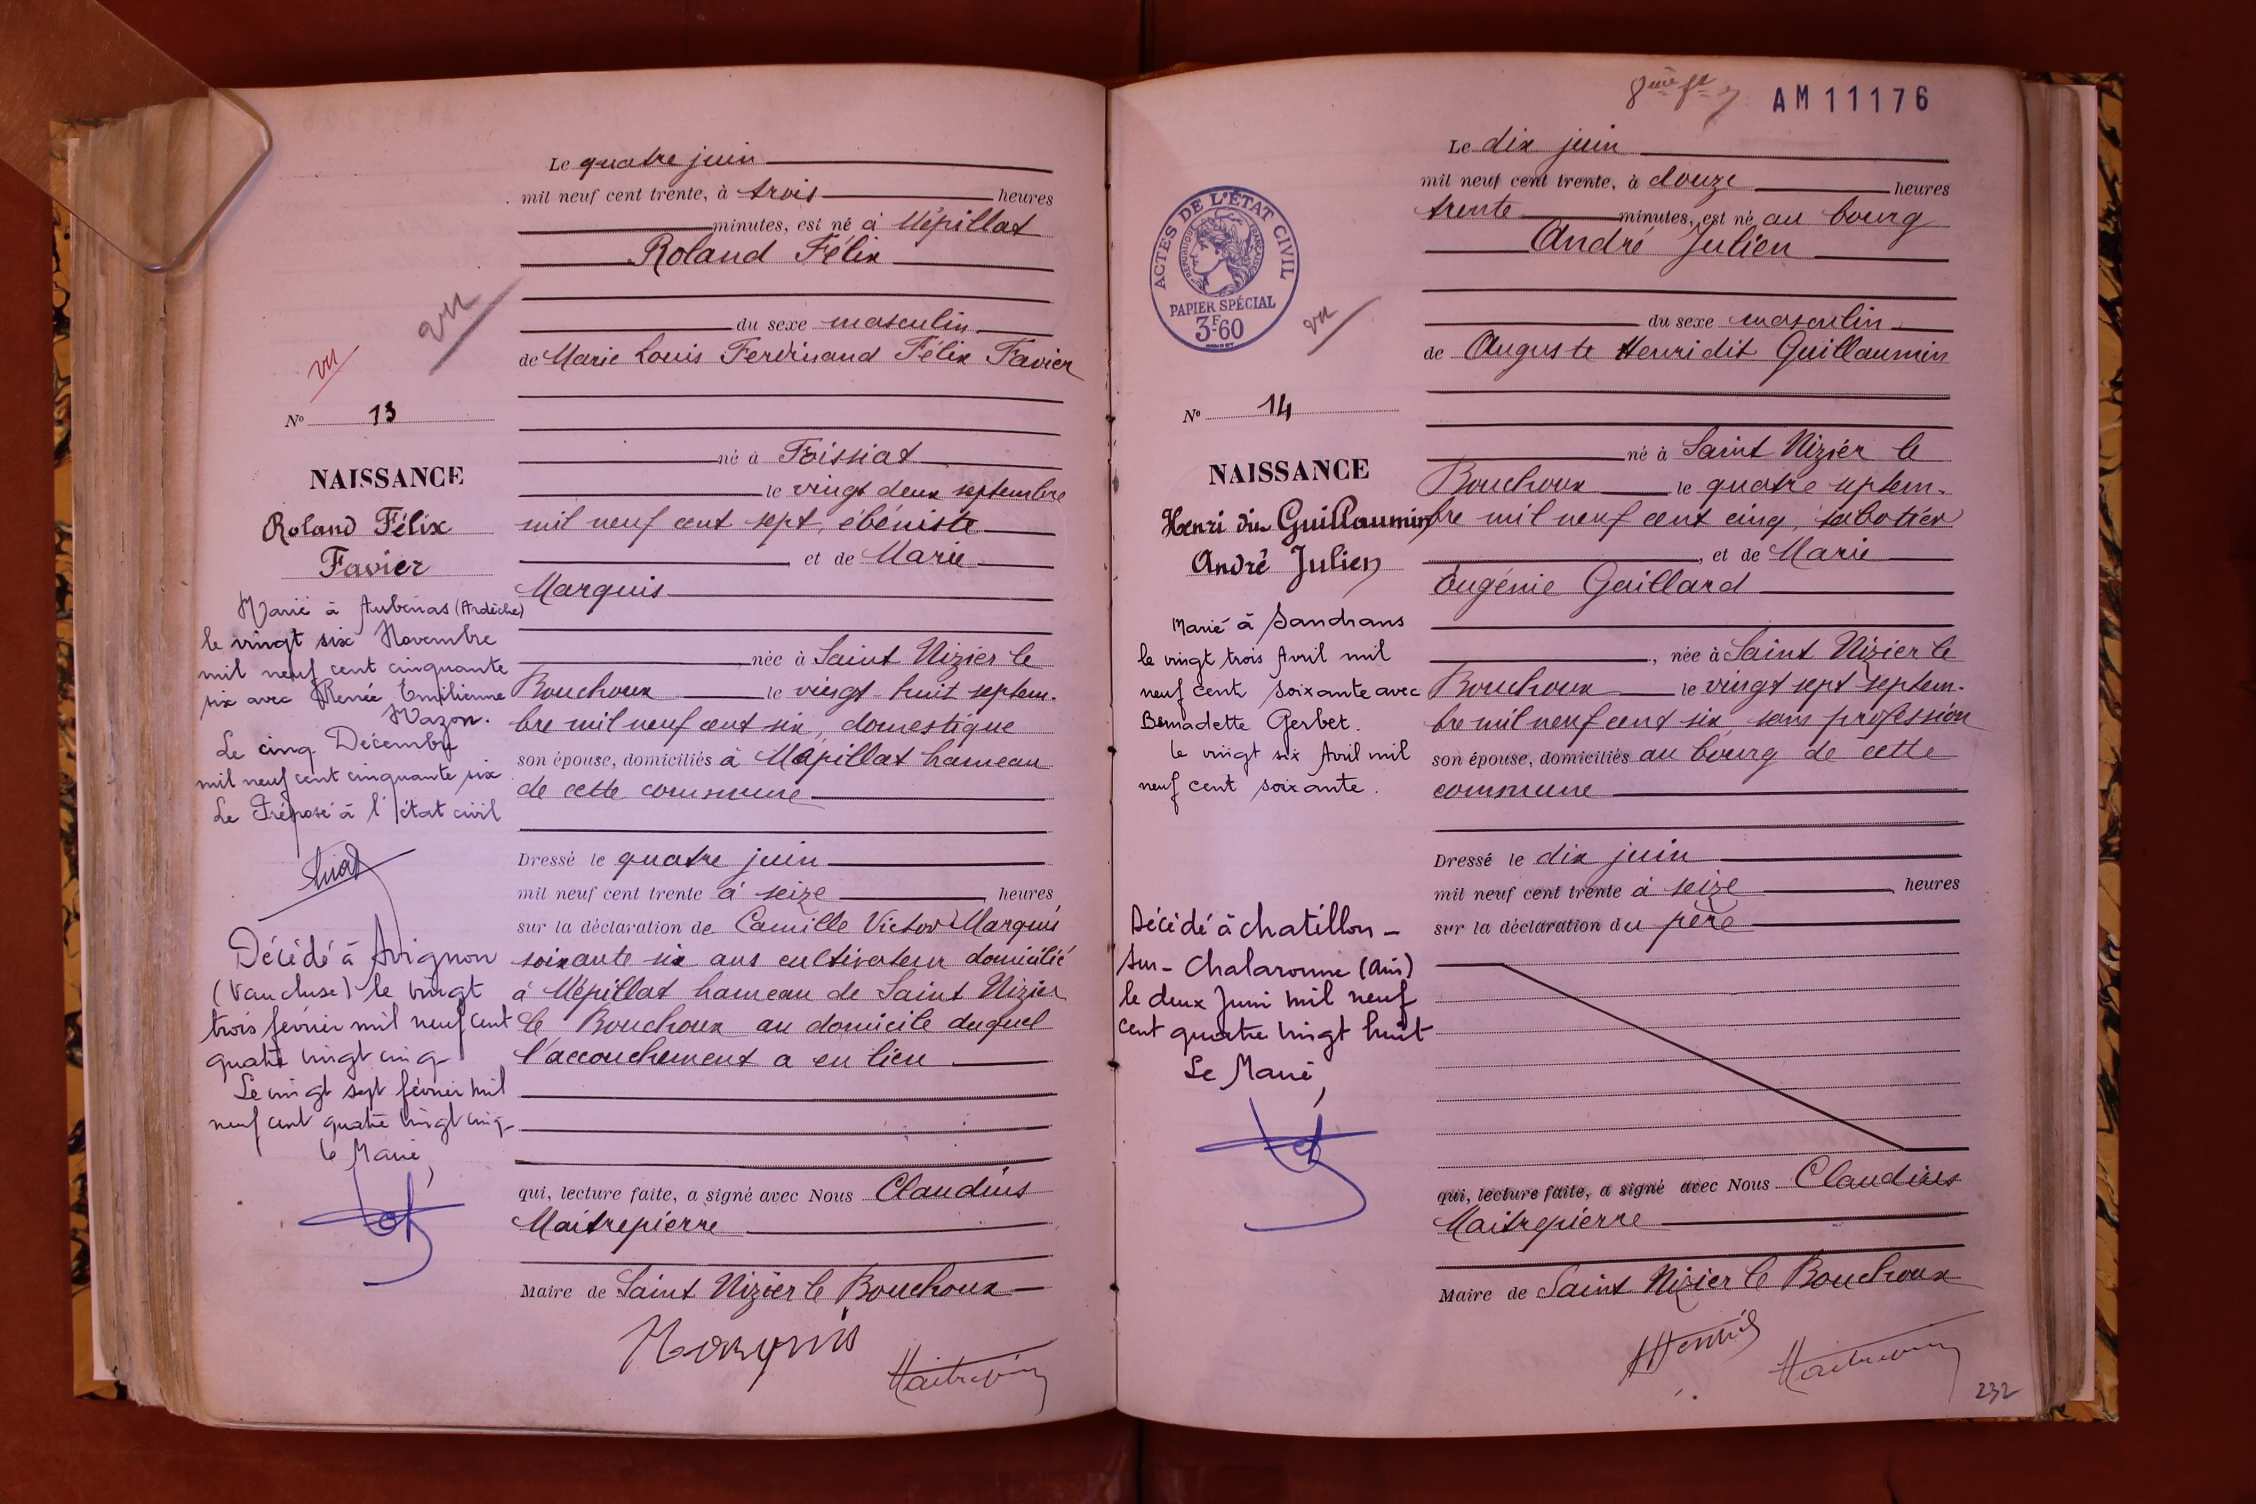 Le quatre juin
mil neuf cent trente, à trois heures
minutes, est né à Mépillat
Roland Félix
du sexe masculin
de Marie Louis Ferdinand Félix Favier
né à Foissiat
le vingt deux septembre
mil neuf cent sept, ébéniste
et de Marie
Marquis
née à Saint Nizier le
Bouchoux le vingt-huit septem-
bre mil neuf cent six, domestique
son épouse, domiciliés à Mépillat hameau
de cette commune
Dressé le quatre juin
mil neuf cent trente à seize heures
sur la déclaration de Camille Victor Marquis
soixante six ans cultivateur domicilié
à Mépillat hameau de Saint Nizier
le Bouchoux au domicile duquel
l'accouchement a eu lieu
qui, lecture faite, a signé avec Nous Claudius
Maitrepierre
Maire de Saint Nizier le Bouchoux
Marquis
Maitrepierre
vu
vu
No 13
NAISSANCE
Roland Félix
Favier
Marié à Aubenas (Ardèche)
le vingt six Novembre
mil neuf cent cinquante
six avec Renée Emilienne
Mazon.
Le cinq Décembre
mil neuf cent cinquante six
Le Préposé à l'état civil
Décédé à Avignon
(Vaucluse) le vingt
trois février mil neuf cent
quatre vingt cinq
Le vingt sept février mil
neuf cent quatre vingt cinq
le Maire,
AM11176
Le dix juin
mil neuf cent trente, à douze heures
trente minutes, est né au bourg
André Julien
du sexe masculin
de Auguste Henri dit Guillaumin
né à Saint Nizier le
Bouchoux le quatre septem-
bre mil neuf cent cinq, sabotier
, et de Marie
Eugénie Gaillard
, née à Saint Nizier le
Bouchoux le vingt sept septem-
bre mil neuf cent six, sans profession
son épouse, domiciliés au bourg de cette
commune
Dressé le dix juin
mil neuf cent trente à seize heures
sur la déclaration du père
qui, lecture faite, a signé avec Nous Claudius
Maitrepierre
Maire de Saint Nizier le Bouchoux
Henri
Maitrepierre
232
ACTES DE L'ÉTAT CIVIL
RÉPUBLIQUE FRANÇAISE
PAPIER SPÉCIAL
3F60
vu
No 14
NAISSANCE
Henri dit Guillaumin
André Julien
Marié à Sandrans
le vingt trois Avril mil
neuf cent soixante avec
Bernadette Gerbet.
le vingt six Avril mil
neuf cent soixante.
Décédé à Chatillon-
sur-Chalaronne (Ain)
le deux Juin mil neuf
cent quatre vingt huit
Le Maire,